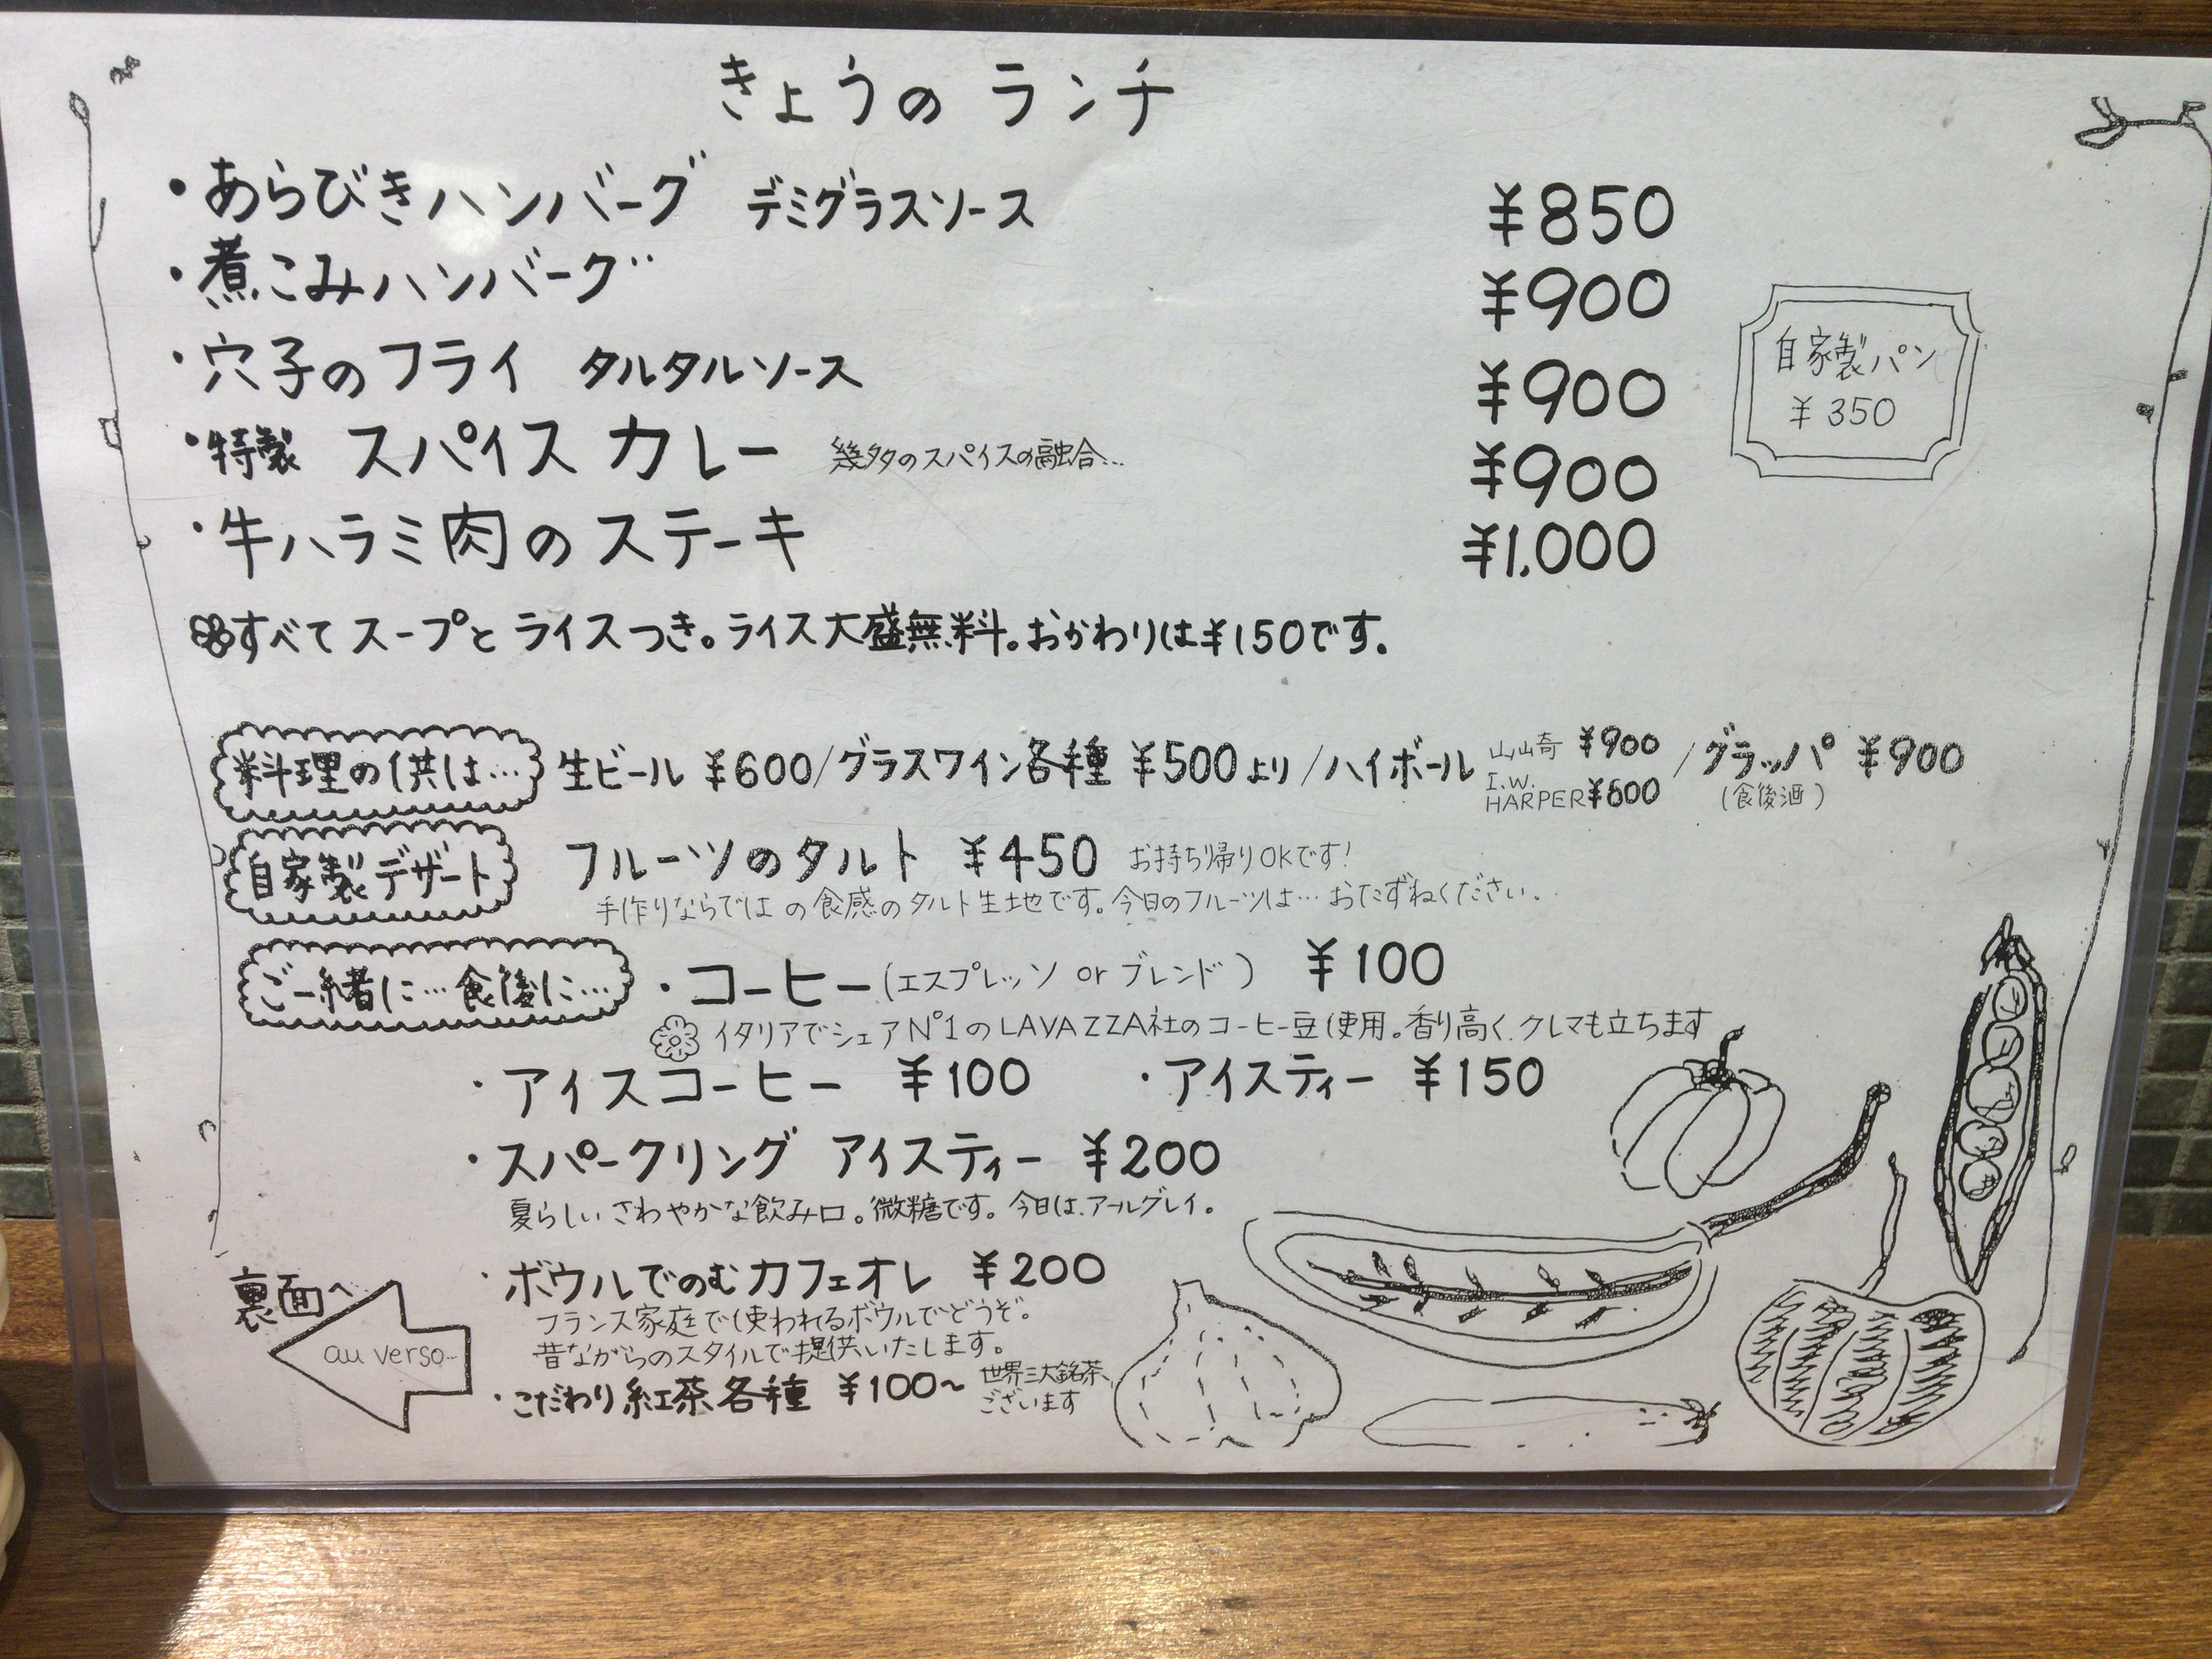 きょうの ランチ
・あらびきハンバーグ デミグラスソース ¥850
・煮こみハンバーグ ¥900
・穴子のフライ タルタルソース ¥900
・特製 スパイスカレー 幾多のスパイスの融合… ¥900
・牛ハラミ肉のステーキ ¥1,000
自家製パン
¥350
すべてスープとライスつき。ライス大盛無料。おかわりは¥150です。
料理の供は… 生ビール ¥600/グラスワイン各種 ¥500より/ハイボール 山崎 ¥900 /グラッパ ¥900
I.W.
HARPER ¥600 (食後酒)
自家製デザート フルーツのタルト ¥450 お持ち帰りOKです!
手作りならではの食感のタルト生地です。今日のフルーツは…おたずねください。
ご一緒に…食後に… ・コーヒー(エスプレッソ or ブレンド) ¥100
イタリアでシェアN°1のLAVAZZA社のコーヒー豆使用。香り高く、クレマも立ちます
・アイスコーヒー ¥100 ・アイスティー ¥150
・スパークリング アイスティー ¥200
夏らしいさわやかな飲み口。微糖です。今日は、アールグレイ。
・ボウルでのむカフェオレ ¥200
フランス家庭で使われるボウルでどうぞ。
昔ながらのスタイルで提供いたします。
・こだわり紅茶各種 ¥100〜 世界三大銘茶、
ございます
裏面へ
au verso…